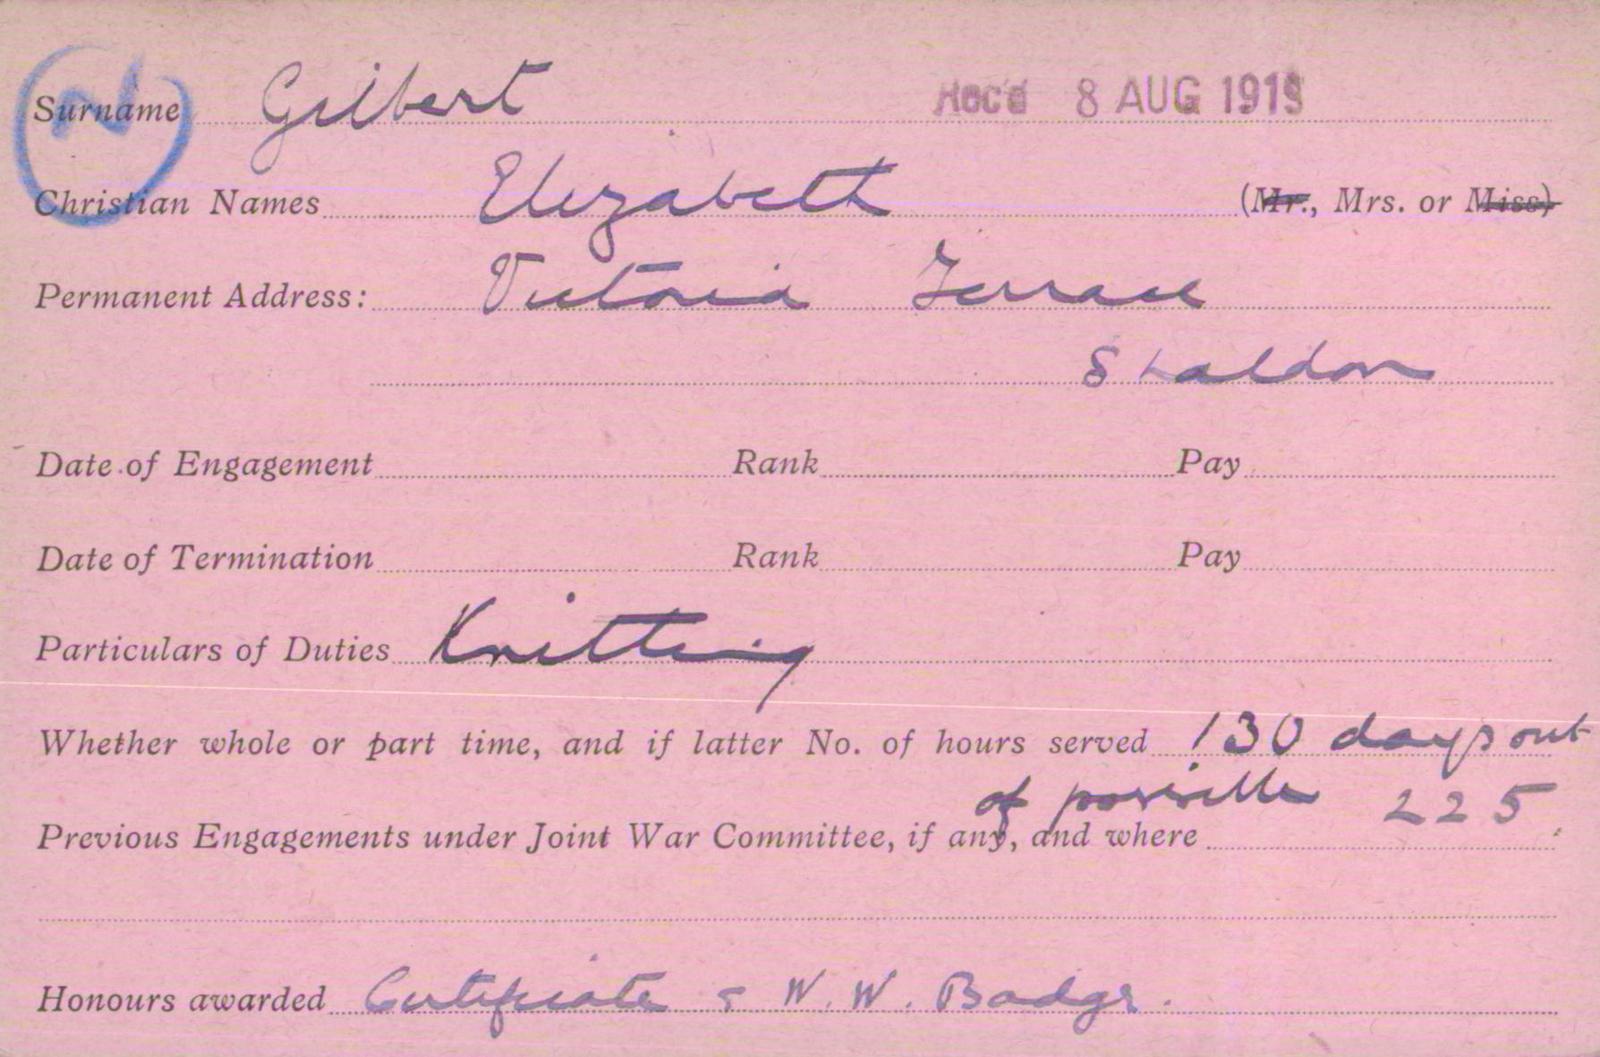 Surname Gilbert Rec'd 8 AUG 1919
Christian Names Elizabeth (Mr., Mrs. or Miss)
Permanent Address: Victoria Terrace
Shaldon
Date of Engagement Rank Pay
Date of Termination Rank Pay
Particulars of Duties Knitting
Whether whole or part time, and if latter No. of hours served 130 days out
of possible 225
Previous Engagements under Joint War Committee, if any, and where
Honours awarded Certificate & W.W. Badge.